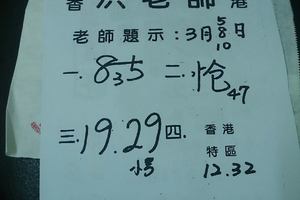 香 洪老師 港
老師題示:3月5 8 10日
一.835 二.怆47
三.19.29 四.香港特區
小号 12.32